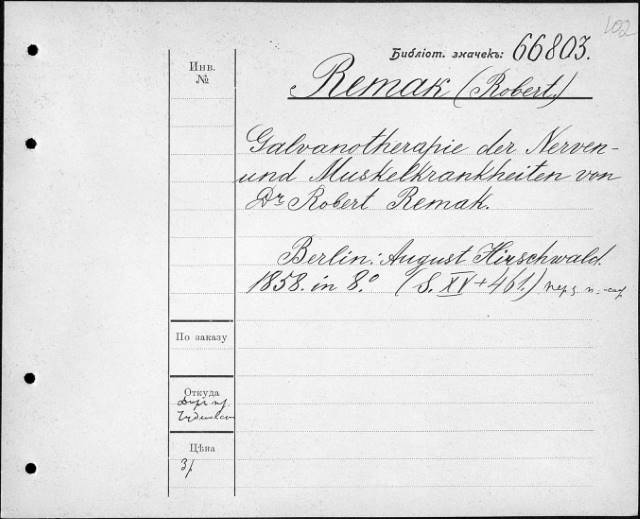 102
Библіот. значекъ: 66803.
Инв.
№
Remak (Robert.)
Galvanotherapie der Nerven-
und Muskelkrankheiten von
Dr Robert Remak.
Berlin: August Hirschwald.
1858. in 8.° (S. XV+461.)
По заказу
Откуда
Цѣна
3р